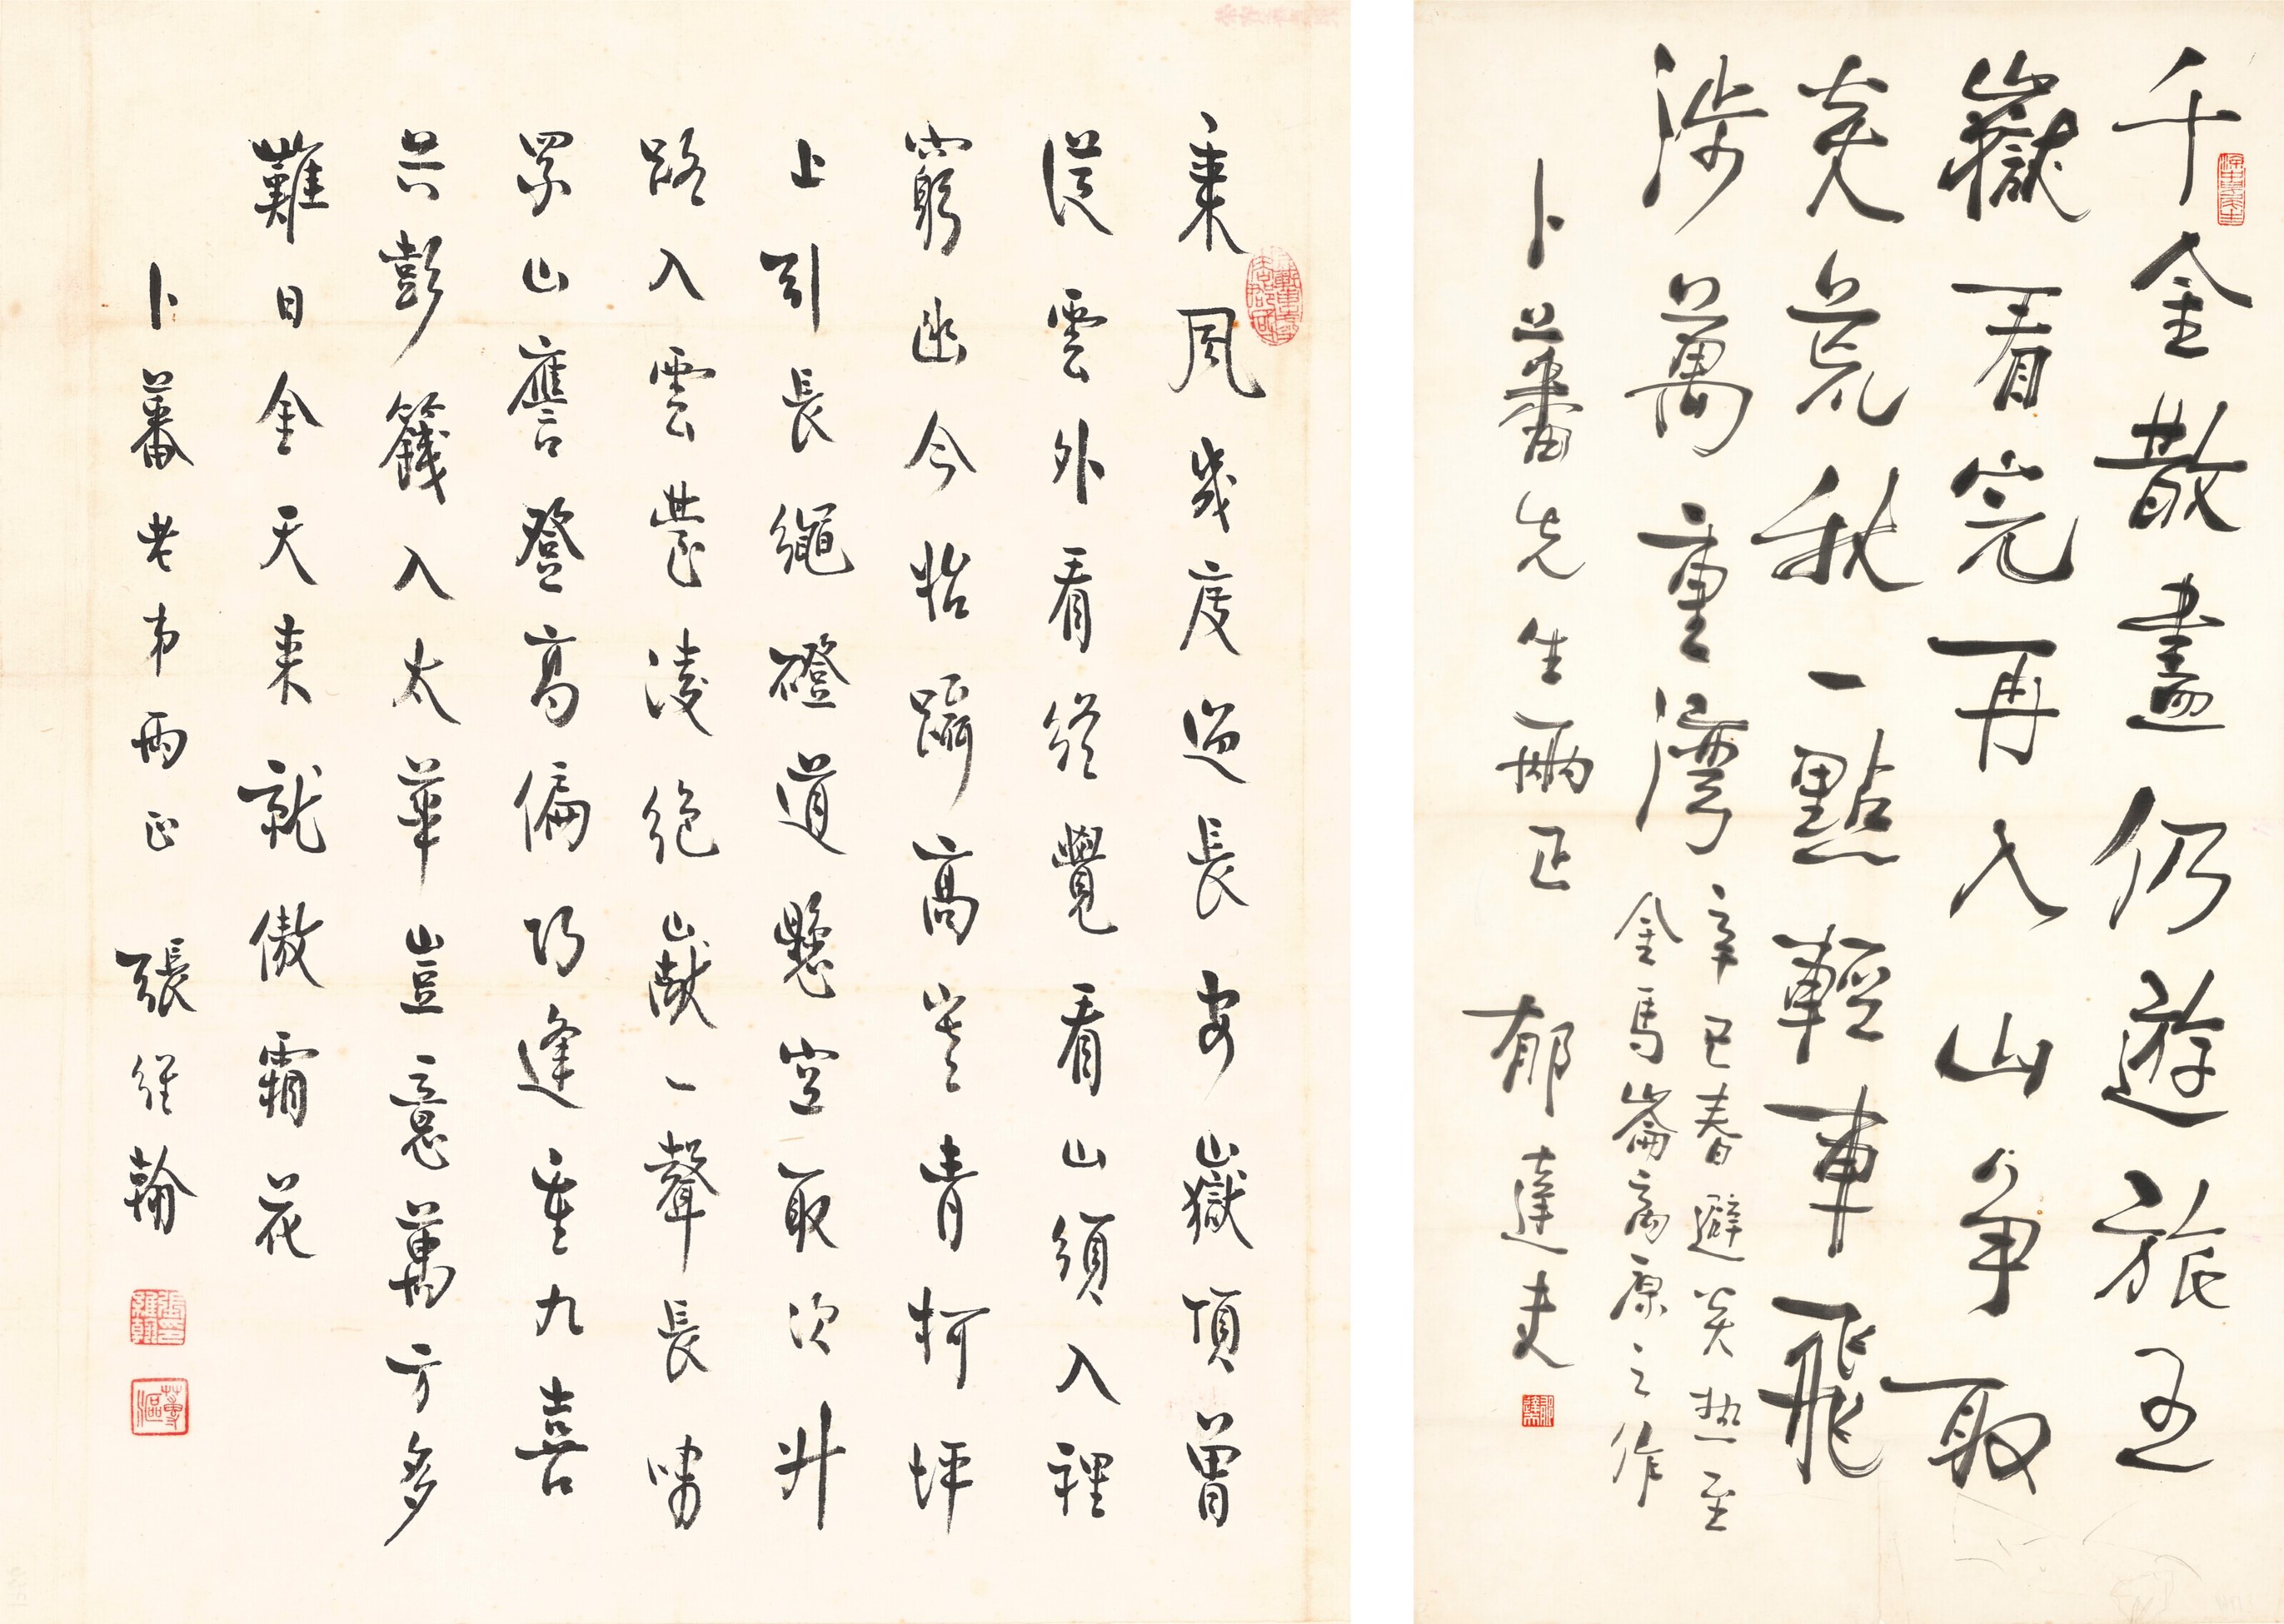 千金散盡仍遊旅五
嶽看完再入山爭取
炎荒秋一點輕車飛
涉萬重灣
辛巳春避炎熱至
金馬崙高原之作
卜蕃先生兩正 郁達夫
乘風幾度過長安嶽頂曾
從雲外看終覺看山須入裡
窮幽今始躡高青柯坪
上引長繩磴道懸空取次升
路入雲叢凌絕巘一聲長嘯
眾山譍登高偏巧逢重九喜
共彭籛入太華豈意萬方多
難日金天來就傲霜花
卜蕃老弟兩正 張維翰
張印維翰
蓴漚